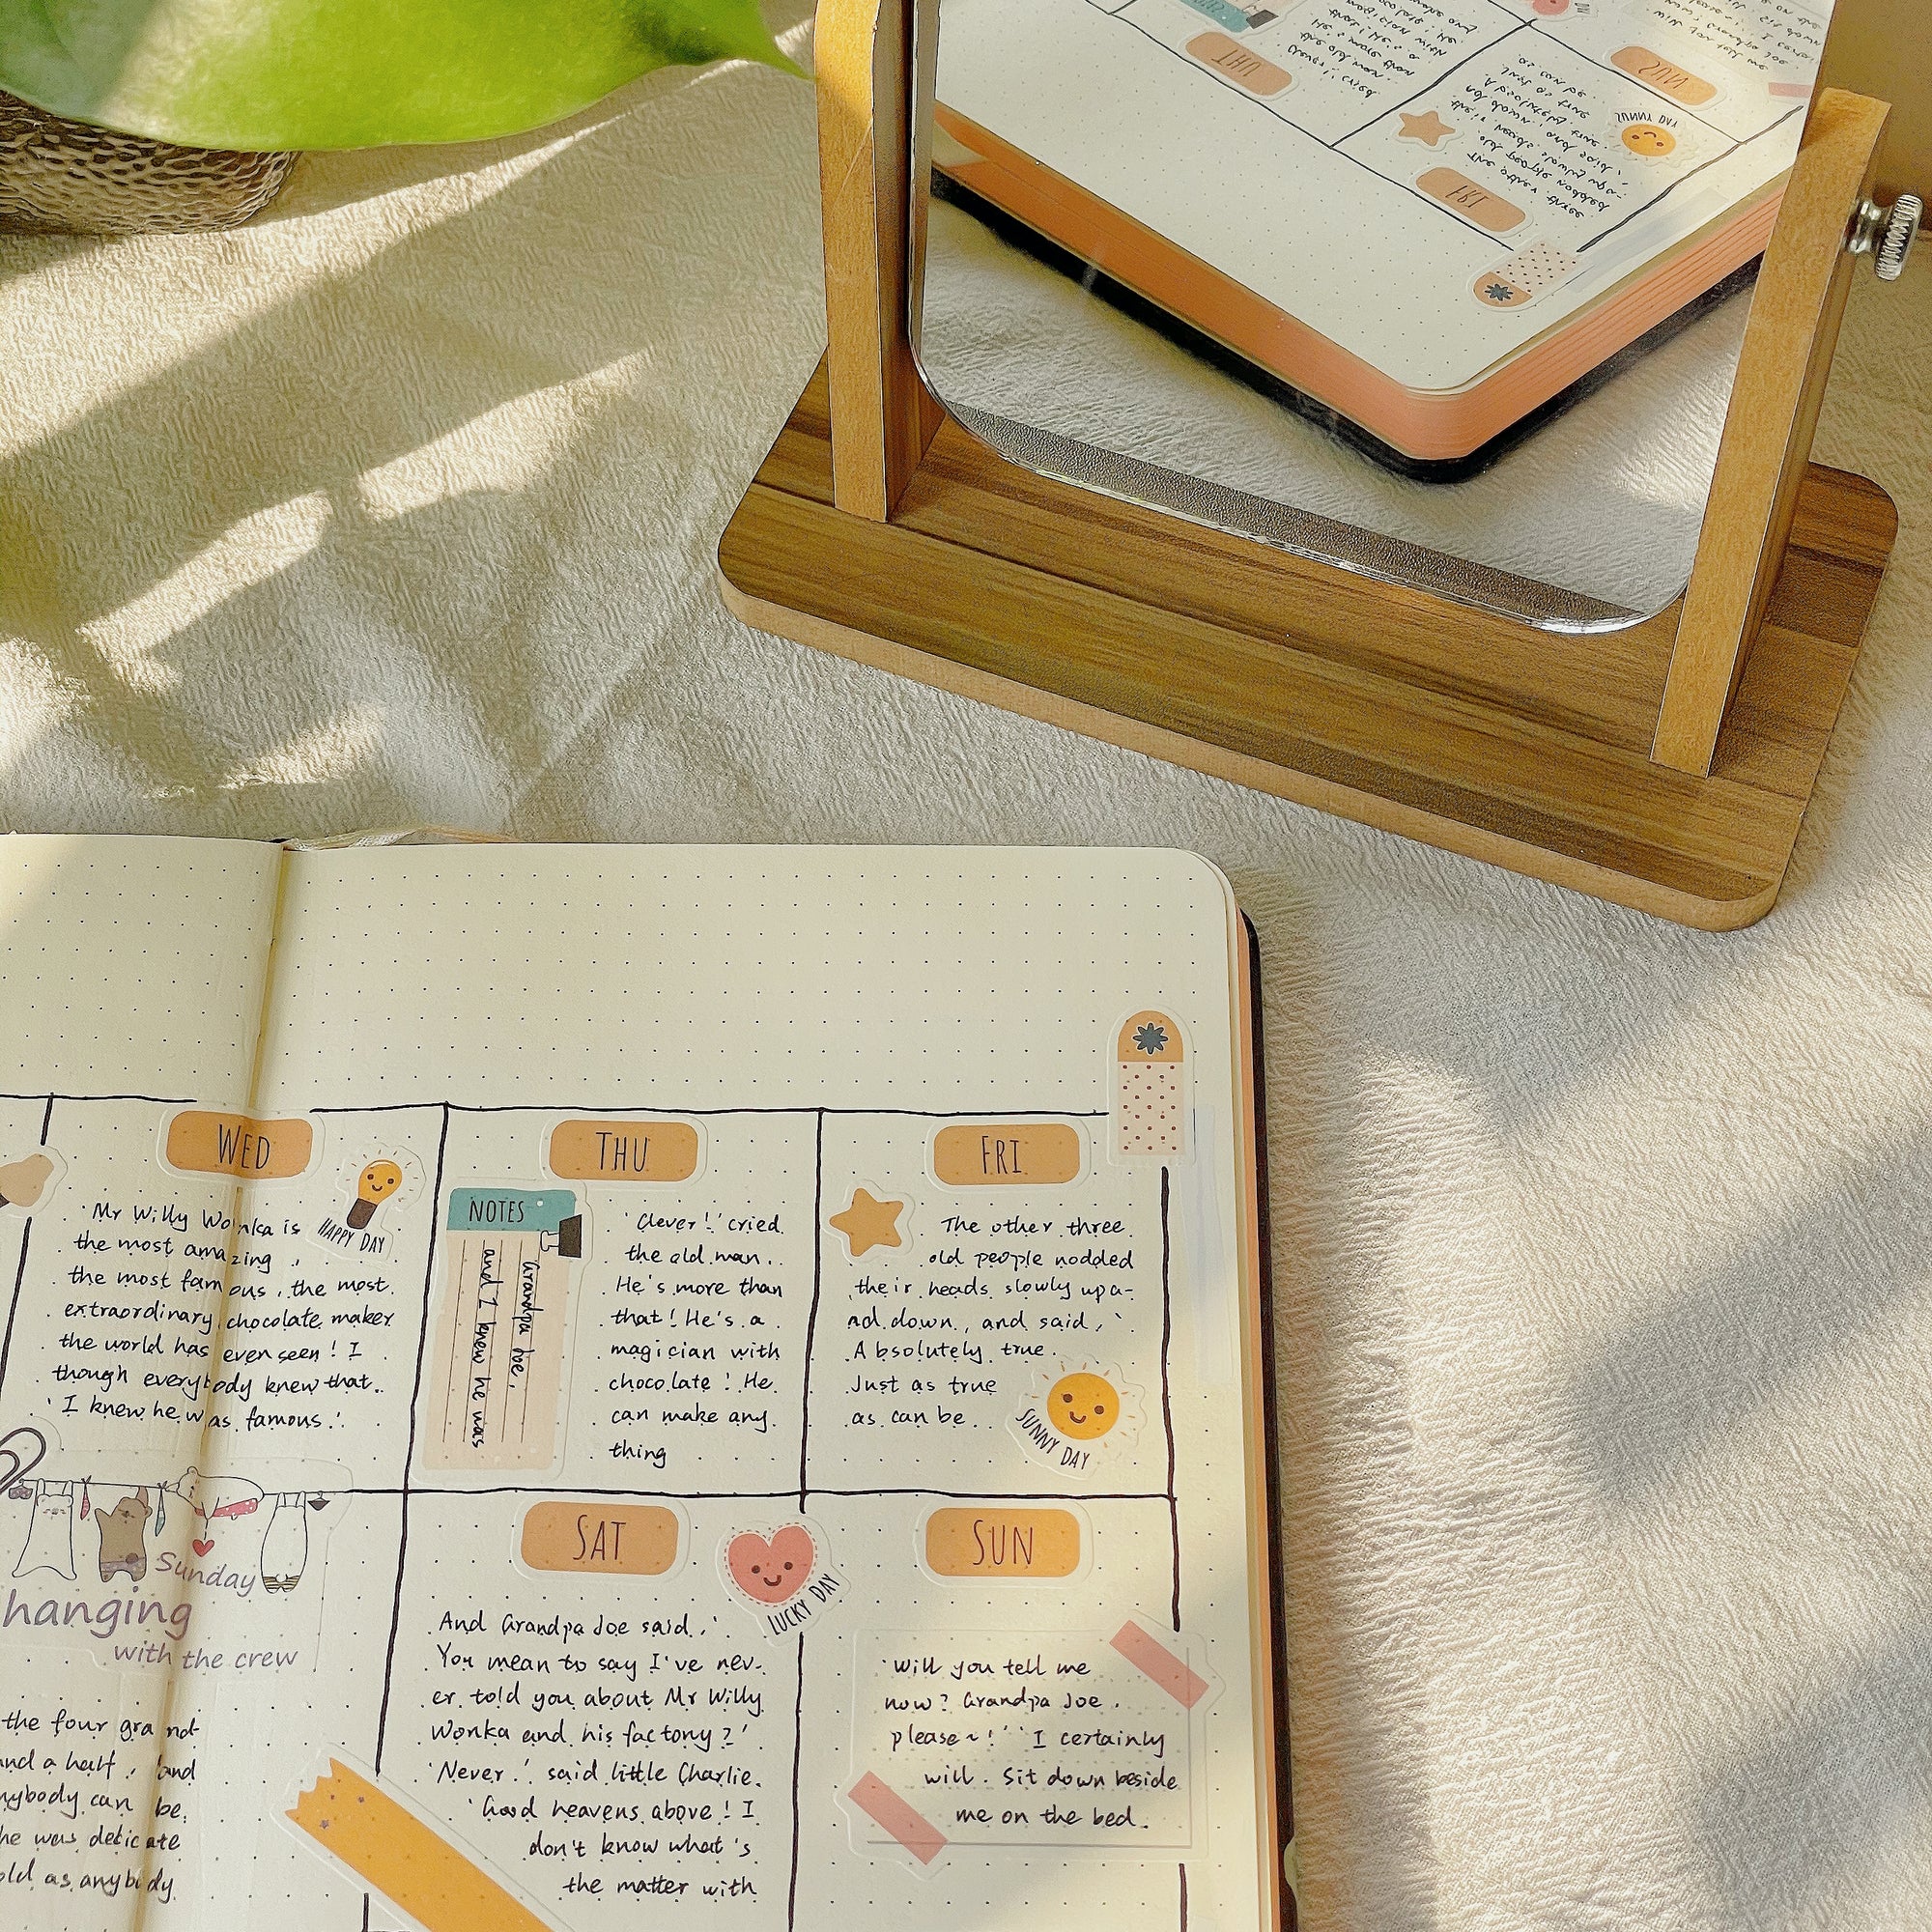 WED
HAPPY DAY
'Mr Willy Wonka is
the most amazing
the most famous, the most
extraordinary chocolate maker
the world has even seen! I
though everybody knew that..
'I knew he was famous.'.
THU
NOTES
Grandpa Joe,
and I knew he was
'Clever!' cried
the old man..
He's more than
that! He's a
magician with
chocolate! He
can make any.
thing
FRI
The other three
old people nodded
their heads slowly up a-
nd down, and said, '
Absolutely true.
Just as true
as can be..
SUNNY DAY
Sunday
hanging
with the crew
the four grand
and a half., 'and
nybody can be.
he was delicate
old as anybody
SAT
LUCKY DAY
And Grandpa Joe said,'
You mean to say I've nev-
er told you about Mr Willy
Wonka and his factory?'
'Never.' said little Charlie.
'Good heavens above! I
don't know what's
the matter with
SUN
'Will you tell me
now? Grandpa Joe.
please~!' 'I certainly
will. Sit down beside
me on the bed.
THU
SUN
SUNNY DAY
FRI